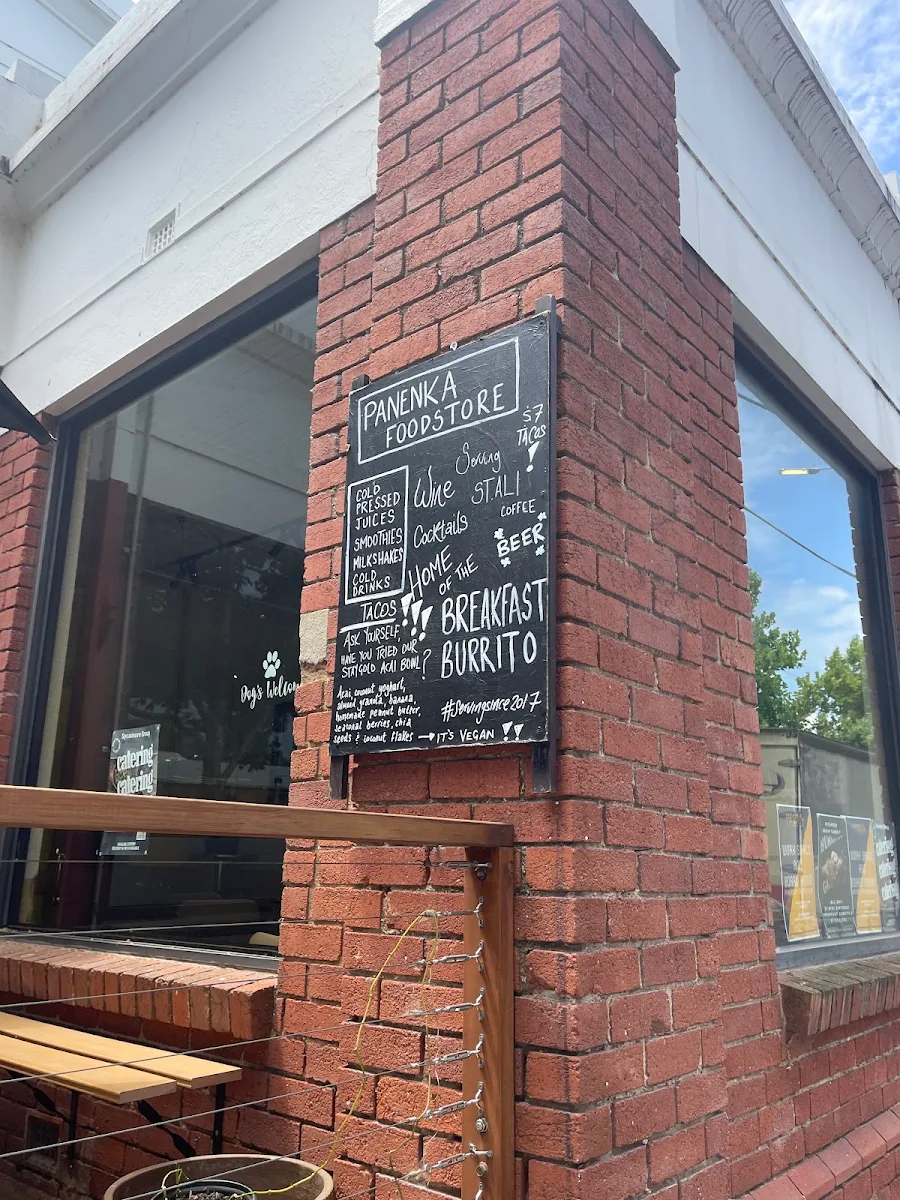 PANENKA
FOODSTORE
$7
TACOS
!
COLD
PRESSED
JUICES
SMOOTHIES
MILKSHAKES
COLD
DRINKS
Serving
Wine
ST.ALI
COFFEE
Cocktails
BEER
HOME
OF THE
BREAKFAST
BURRITO
TACOS !!!
ASK YOURSELF,
HAVE YOU TRIED OUR
STAYGOLD ACAI BOWL?
Acai, coconut yoghurt,
almond granola, banana,
homemade peanut butter,
seasonal berries, chia
seeds & coconut flakes → IT'S VEGAN !!
#servingsince2017
Dog's Welcom
catering
catering